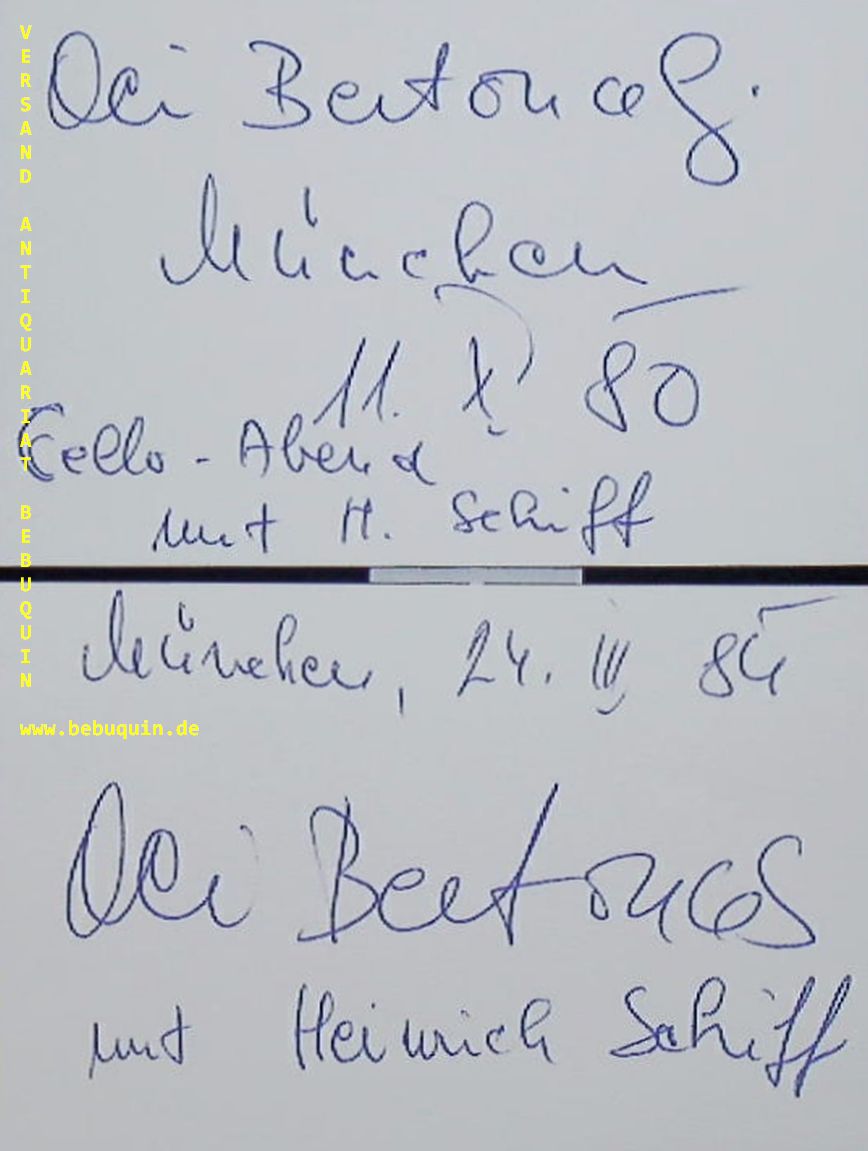 Oci Bertoncelj
München
11. X. 80
Cello - Abend
mit H. Schiff
München, 24. III 84
Oci Bertoncelj
mit Heinrich Schiff
VERSAND ANTIQUARIAT BEBUQUIN
www.bebuquin.de